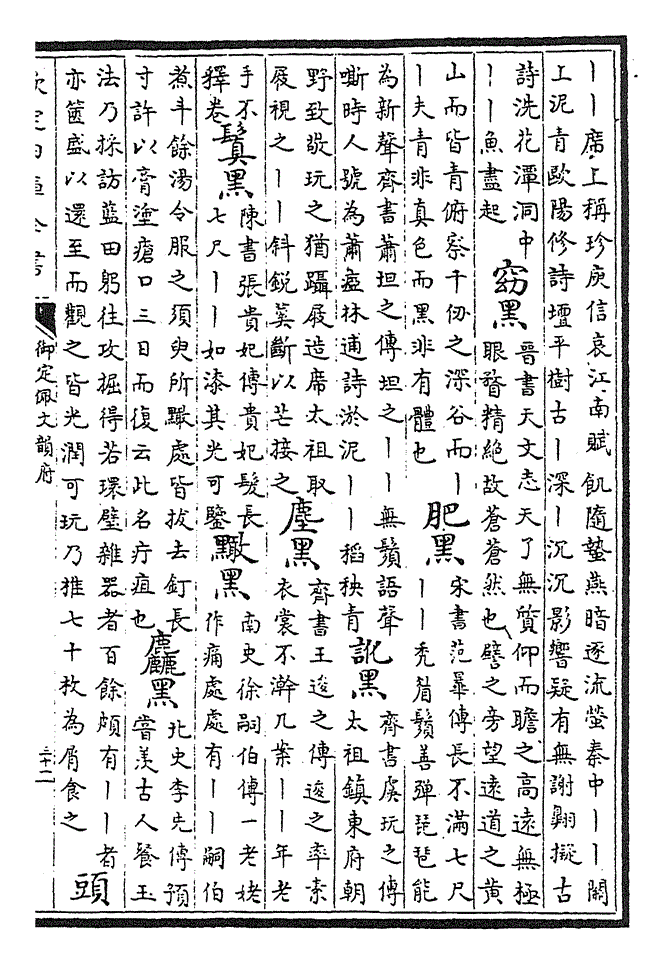 ｜｜席上稱珍庾信哀江南賦飢隨蟄燕暗逐流螢秦中｜｜關
上泥青歐陽修詩壇平樹古｜深｜沉沉影響疑有無謝翱擬古
詩洗花潭洞中
｜｜魚盡起
窈黑
晉書天文志天了無質仰而瞻之高遠無極
眼瞀精絶故蒼蒼然也譬之旁望遠道之黄
山而皆青俯察千仞之深谷而｜
｜夫青非真色而黑非有體也
肥黑
宋書范曄傳長不滿七尺
｜｜秃眉鬚善彈琵琶能
為新聲齊書蕭坦之傳坦之｜｜無鬚語聲
嘶時人號為蕭瘂林逋詩淤泥｜｜稻秧青
訛黑
齊書虞玩之傳
太祖鎮東府朝
野致敬玩之猶躡屐造席太祖取
屐視之｜｜斜鋭蒵斷以芒接之
塵黑
齊書王逡之傳逡之率素
衣裳不澣几案｜｜年老
手不
釋卷
鬒黑
陳書張貴妃傳貴妃髮長
七尺｜｜如漆其光可鑒
黑
南史徐嗣伯傳一老姥
作痛處處有｜｜嗣伯
煮斗餘湯令服之須臾所處皆拔去釘長
寸許以膏塗瘡口三日而復云此名疔疽也
麤黑
北史李先傳預
嘗羡古人餐玉
法乃採訪藍田躬往攻掘得若環璧雜器者百餘頗有｜｜者
亦篋盛以還至而觀之皆光潤可玩乃推七十枚為屑食之
頭
欽定四庫全書
御定佩文韻府
三十二